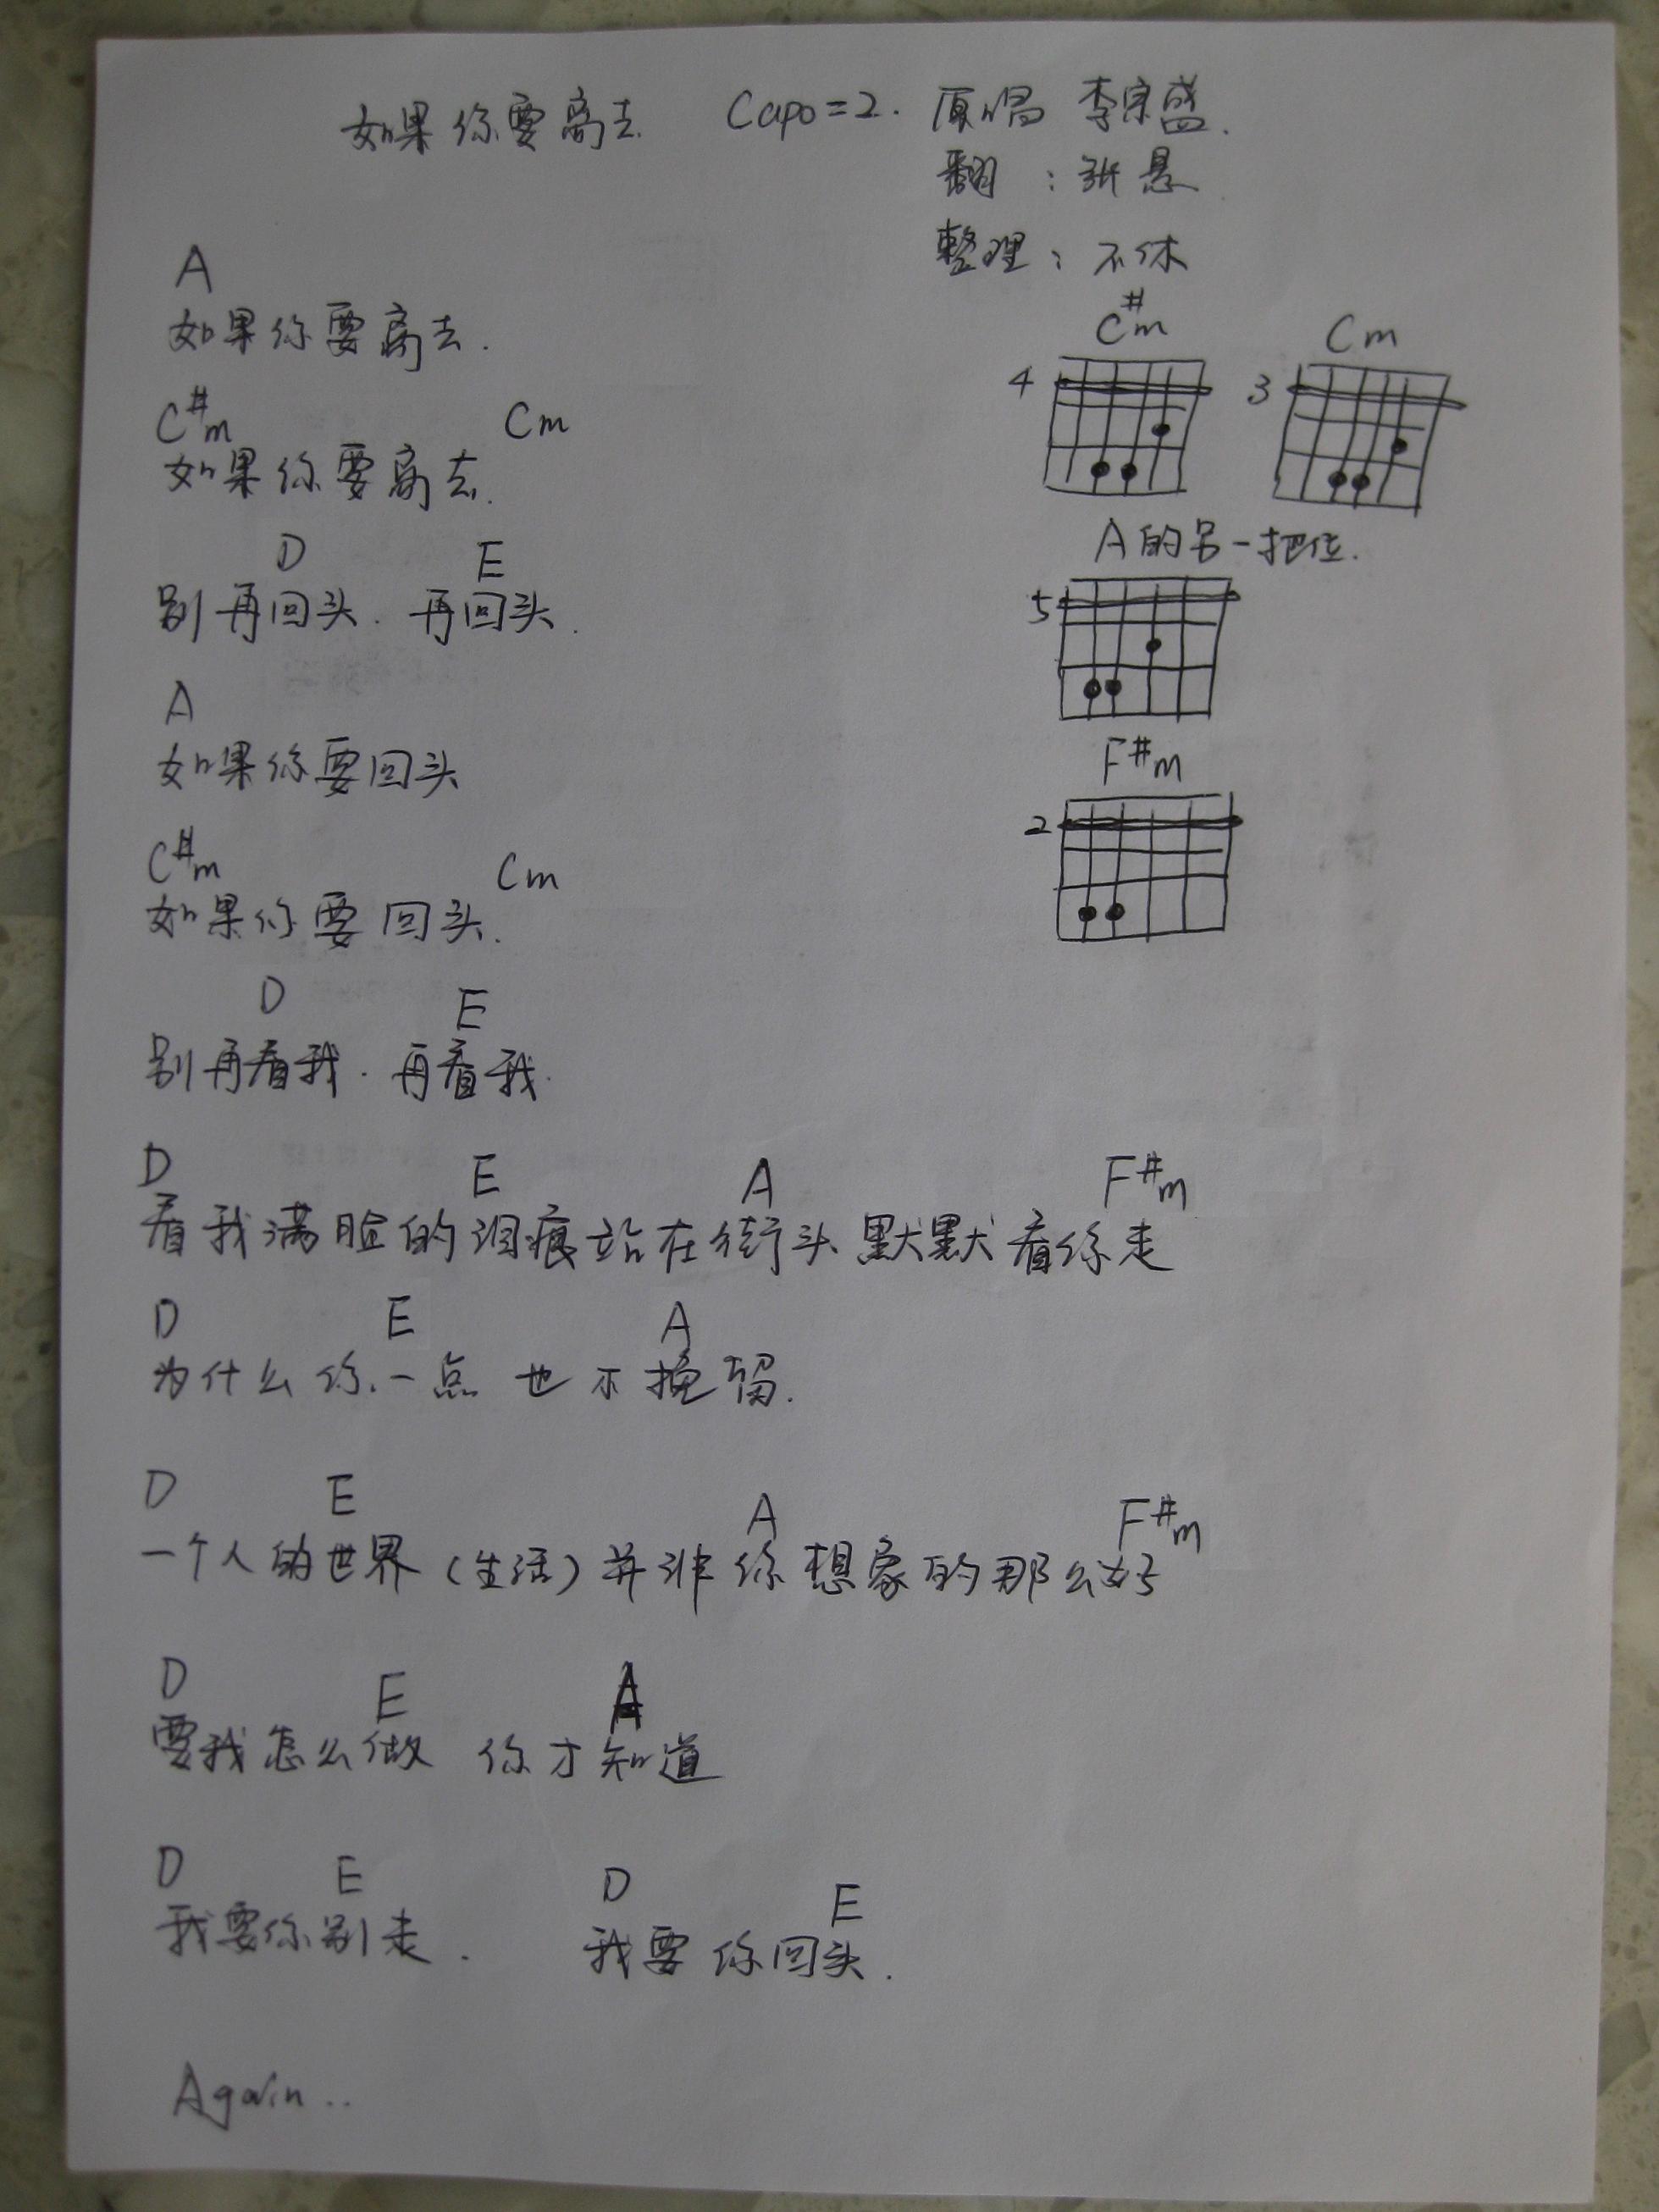 如果你要离去 Capo=2. 原唱 李宗盛.
翻:张悬
整理:不休
A
如果你要离去.
C#m Cm
如果你要离去.
D E
别再回头.再回头.
A
如果你要回头
C#m Cm
如果你要回头.
D E
别再看我.再看我.
D E A F#m
看我满脸的泪痕站在街头默默看你走
D E A
为什么你一点也不挽留.
D E A F#m
一个人的世界(生活)并非你想象的那么好
D E A
要我怎么做 你才知道
D E D E
我要你别走. 我要你回头.
Again..
C#m Cm
4 3
A的另一把位.
5
F#m
2